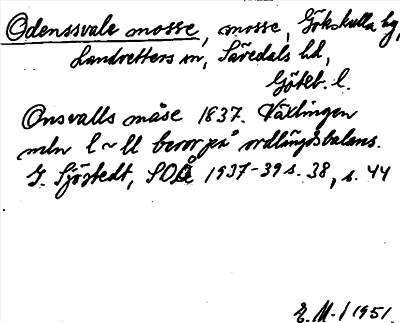 Odenssvale mosse, mosse, Gökskulla hg,
Landvetters sn, Sävedals hd,
Göteb. l.
Onsvalls måse 1837. Växlingen
mln l ~ ll beror på ordlängdsbalans.
G. Sjöstedt, SOÅ 1937-39 s. 38, s. 44
E. M-l 1951.